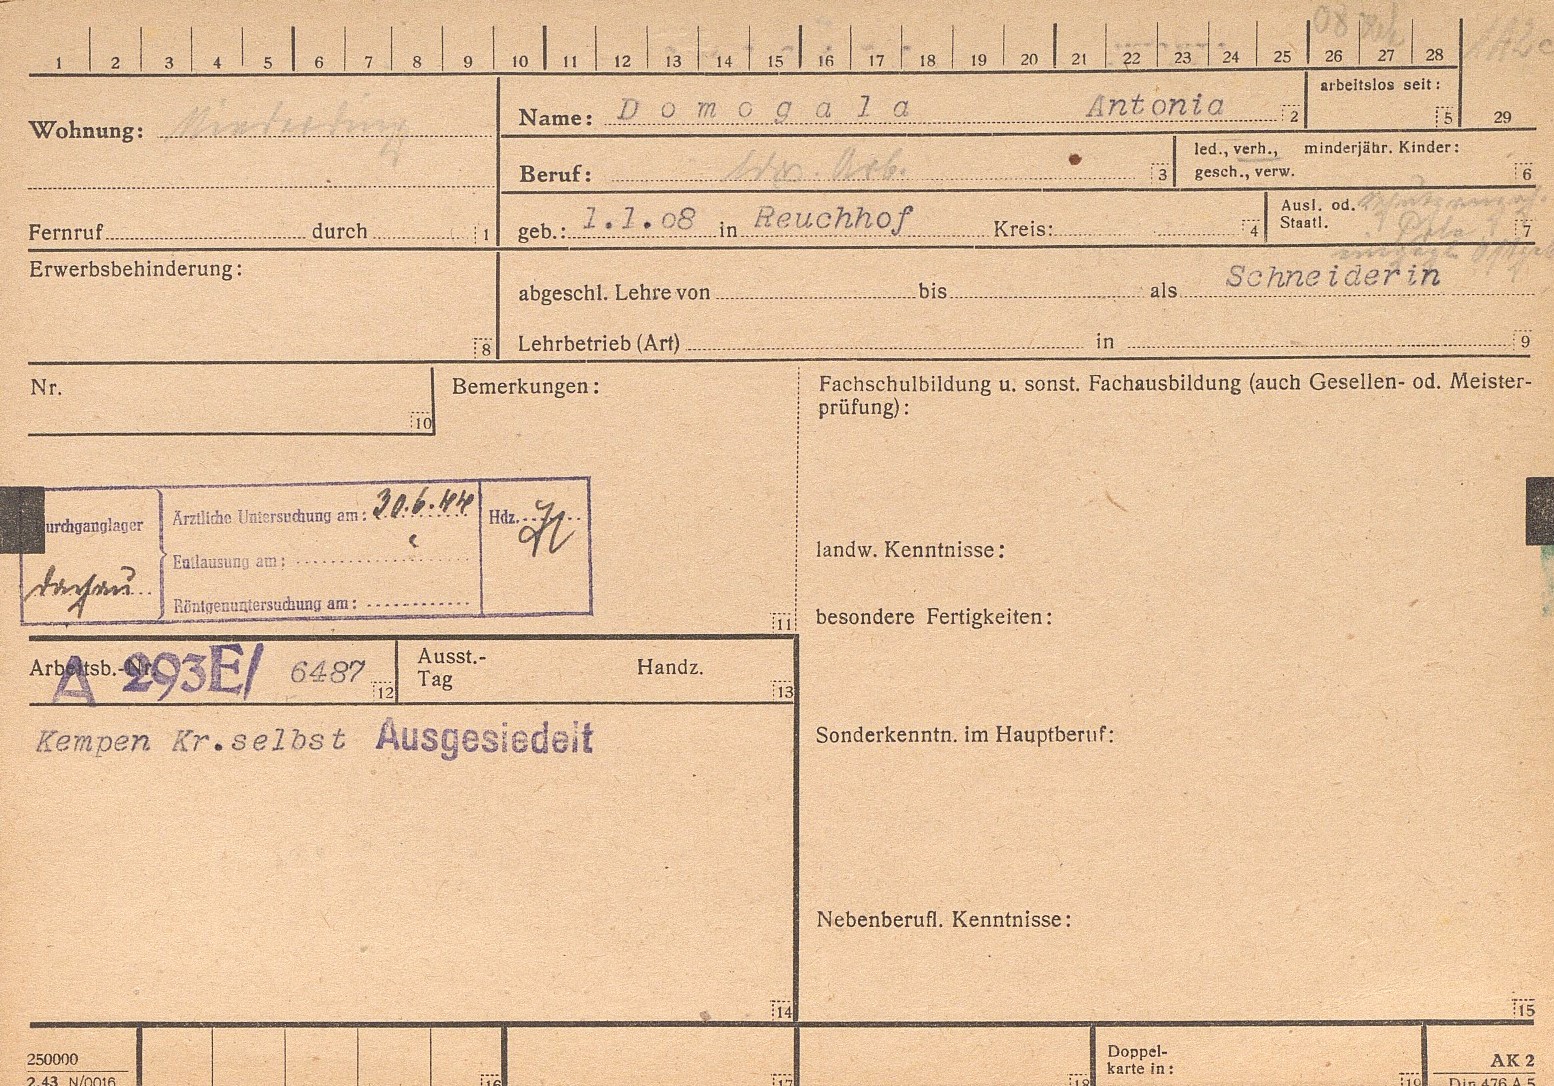 1 2 3 4 5 6 7 8 9 10 11 12 13 14 15 16 17 18 19 20 21 22 23 24 25 26 27 28 29
Wohnung:
Name: Domogala Antonia 2
arbeitslos seit: 5
Beruf: ldw. Arb. 3
led., verh., minderjähr. Kinder:
gesch., verw. 6
Fernruf durch 1
geb.: 1.1.08 in Reuchhof Kreis: 4
Ausl. od.
Staatl. 7
Erwerbsbehinderung: 8
abgeschl. Lehre von bis als Schneiderin
Lehrbetrieb (Art) in 9
Nr. 10
Bemerkungen:
Fachschulbildung u. sonst. Fachausbildung (auch Gesellen- od. Meister-
prüfung):
urchganglager
Dachau
Ärztliche Untersuchung am: 30.6.44
Entlausung am:
Röntgenuntersuchung am:
Hdz.
11
landw. Kenntnisse:
besondere Fertigkeiten:
Arbeitsb.-Nr. A 293E/ 6487 12
Ausst.-
Tag
Handz. 13
Kempen Kr.selbst Ausgesiedelt
14
Sonderkenntn. im Hauptberuf:
Nebenberufl. Kenntnisse:
15
250000
2.43 N/0016
16 17 18
Doppel-
karte in: 19
AK 2
Din 476 A 5